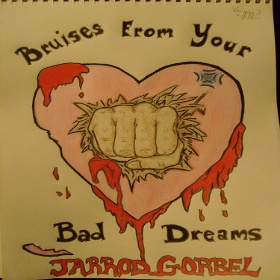 Bruises From Your
Bad Dreams
JARROD GORBEL